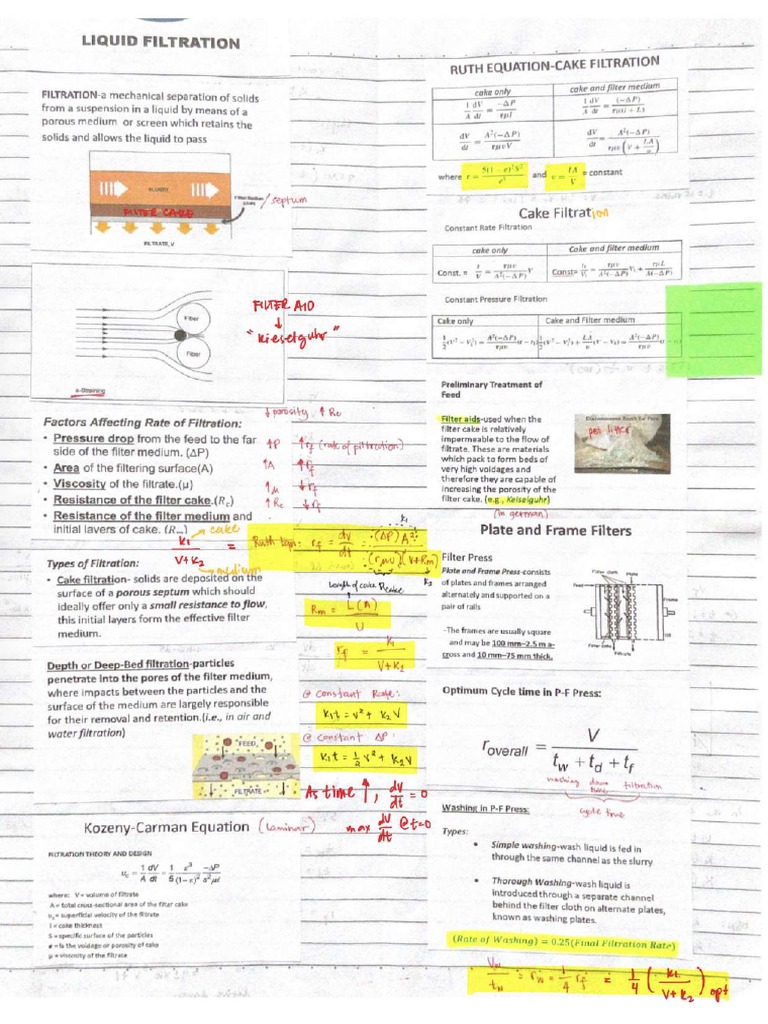 LIQUID FILTRATION
FILTRATION-a mechanical separation of solids
from a suspension in a liquid by means of a
porous medium or screen which retains the
solids and allows the liquid to pass
SLURRY
FILTER CAKE
Filter Medium
/ septum
FILTRATE, V
Fiber
Fiber
a-Straining
FILTER AID
↓
"kieselguhr"
Factors Affecting Rate of Filtration:
↓ porosity ↑ Rc
• Pressure drop from the feed to the far
side of the filter medium. (ΔP)
↑P ↑ rf (rate of filtration)
• Area of the filtering surface(A)
↑A ↑ rf
• Viscosity of the filtrate.(μ)
↑μ ↓ rf
• Resistance of the filter cake.(Rc)
↑ Rc ↓ rf
• Resistance of the filter medium and
initial layers of cake. (Rm)
k1 → cake
V+k2 → medium
= Ruth Eqn: rf = dv/dt = (ΔP)A² / (rμv)(V+Rm)
k1
k2
Length of cake Rcake
Rm = L(A)/U
rf = k1/(V+k2)
Types of Filtration:
• Cake filtration- solids are deposited on the
surface of a porous septum which should
ideally offer only a small resistance to flow,
this initial layers form the effective filter
medium.
Depth or Deep-Bed filtration-particles
penetrate into the pores of the filter medium,
where impacts between the particles and the
surface of the medium are largely responsible
for their removal and retention.(i.e., in air and
water filtration)
FEED
FILTRATE
@ constant Rate:
k1t = v² + k2V
@ constant ΔP:
k1t = 1/2 v² + k2v
As time ↑, dv/dt = 0
max dv/dt @t=0
Kozeny-Carman Equation (Laminar)
FILTRATION THEORY AND DESIGN
uc = 1/A dV/dt = 1/5 e³/(1−e)² −ΔP/S²μl
where: V = volume of filtrate
A = total cross-sectional area of the filter cake
uc = superficial velocity of the filtrate
l = cake thickness
S = specific surface of the particles
e = is the voidage or porosity of cake
μ = viscosity of the filtrate
RUTH EQUATION-CAKE FILTRATION
cake only
cake and filter medium
1/A dV/dt = −ΔP/rμl
1/A dV/dt = (−ΔP)/rμ(l + L)
dV/dt = A²(−ΔP)/rμvV
dV/dt = A²(−ΔP)/rμv(V + LA/v)
where r = 5(1 − e)²S²/e³ and v = lA/V = constant
Cake Filtration
Constant Rate Filtration
cake only
Cake and filter medium
Const. = t/V = rμv/A²(−ΔP) V
Const= t1/V1 = rμv/A²(−ΔP) V1 + rμL/A(−ΔP)
Constant Pressure Filtration
Cake only
Cake and Filter medium
1/2(V² − V1²) = A²(−ΔP)/rμv (t − t1)
1/2(V² − V1²) + LA/v (V − V1) = A²(−ΔP)/rμv (t − t1)
Preliminary Treatment of
Feed
Filter aids-used when the
filter cake is relatively
impermeable to the flow of
filtrate. These are materials
which pack to form beds of
very high voidages and
therefore they are capable of
increasing the porosity of the
filter cake. (e.g., Keiselguhr)
(in german)
Plate and Frame Filters
Filter Press
Plate and Frame Press-consists
of plates and frames arranged
alternately and supported on a
pair of rails
-The frames are usually square
and may be 100 mm–2.5 m a-
cross and 10 mm–75 mm thick.
Filter cloth
Plate
Feed
Frame
Filter cake
Filtrate
Optimum Cycle time in P-F Press:
roverall = V/(tw + td + tf)
washing down time filtration
cycle time
Washing in P-F Press:
Types:
• Simple washing-wash liquid is fed in
through the same channel as the slurry
• Thorough Washing-wash liquid is
introduced through a separate channel
behind the filter cloth on alternate plates,
known as washing plates.
(Rate of Washing) = 0.25(Final Filtration Rate)
Vw/tw = rw = 1/4 rf = 1/4 (k1/(V+k2))opt